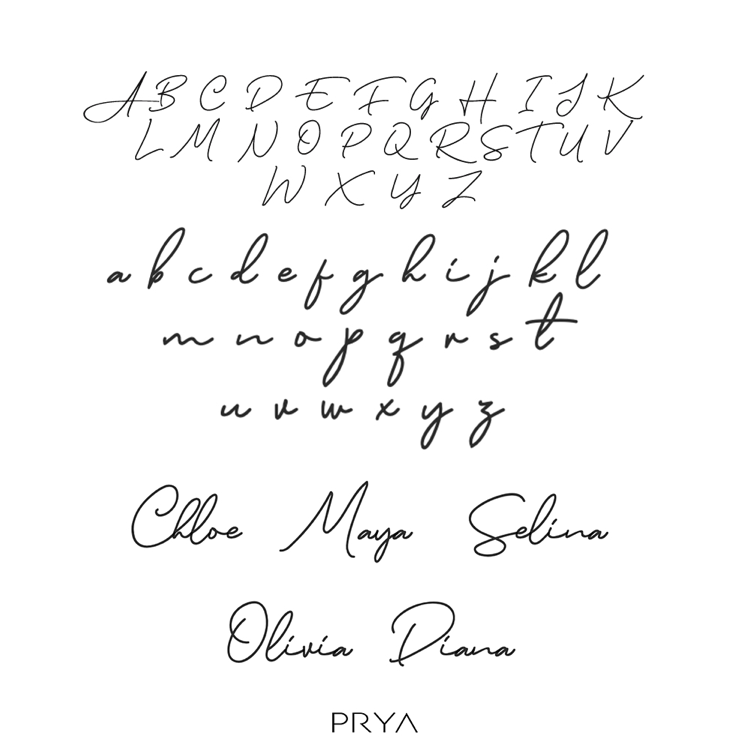 A B C D E F G H I J K
L M N O P Q R S T U V
W X Y Z
a b c d e f g h i j k l
m n o p q r s t
u v w x y z
Chloe Maya Selina
Olivia Diana
PRYA